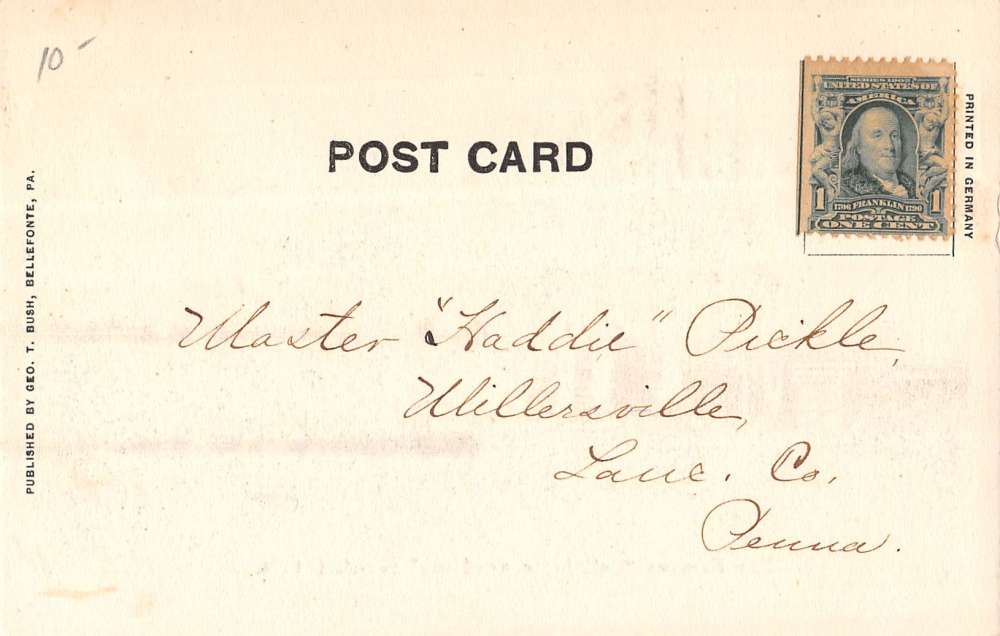 10-
POST CARD
SERIES 1902
UNITED STATES OF
AMERICA
1 1
1706 FRANKLIN 1790
POSTAGE
ONE CENT
PRINTED IN GERMANY
PUBLISHED BY GEO. T. BUSH, BELLEFONTE, PA.
Master "Haddie" Pickle,
Millersville,
Lanc. Co.
Penna.